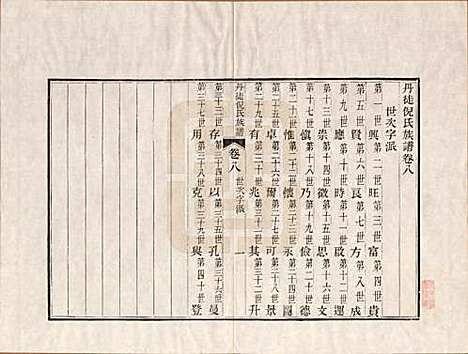 丹徒倪氏族譜卷八
世次字派
第一世興第二世旺第三世富第四世貴
第五世賢第六世良第七世方第八世成
第九世應第十世時第十一世啟第十二世運
第十三世崇第十四世徵第十五世思第十六世文
第十七世慎第十八世乃第十九世儉第二十世德
第二十一世惟第二十二世懷第二十三世永第二十四世圖
丹徒倪氏族譜
卷八
世次字派
一
第二十五世卓第二十六世爾第二十七世可第二十八世景
第二十九世有第三十世兆第三十一世其第三十二世升
第三十三世存第三十四世以第三十五世孔第三十六世曼
第三十七世用第三十八世克第三十九世與第四十世登